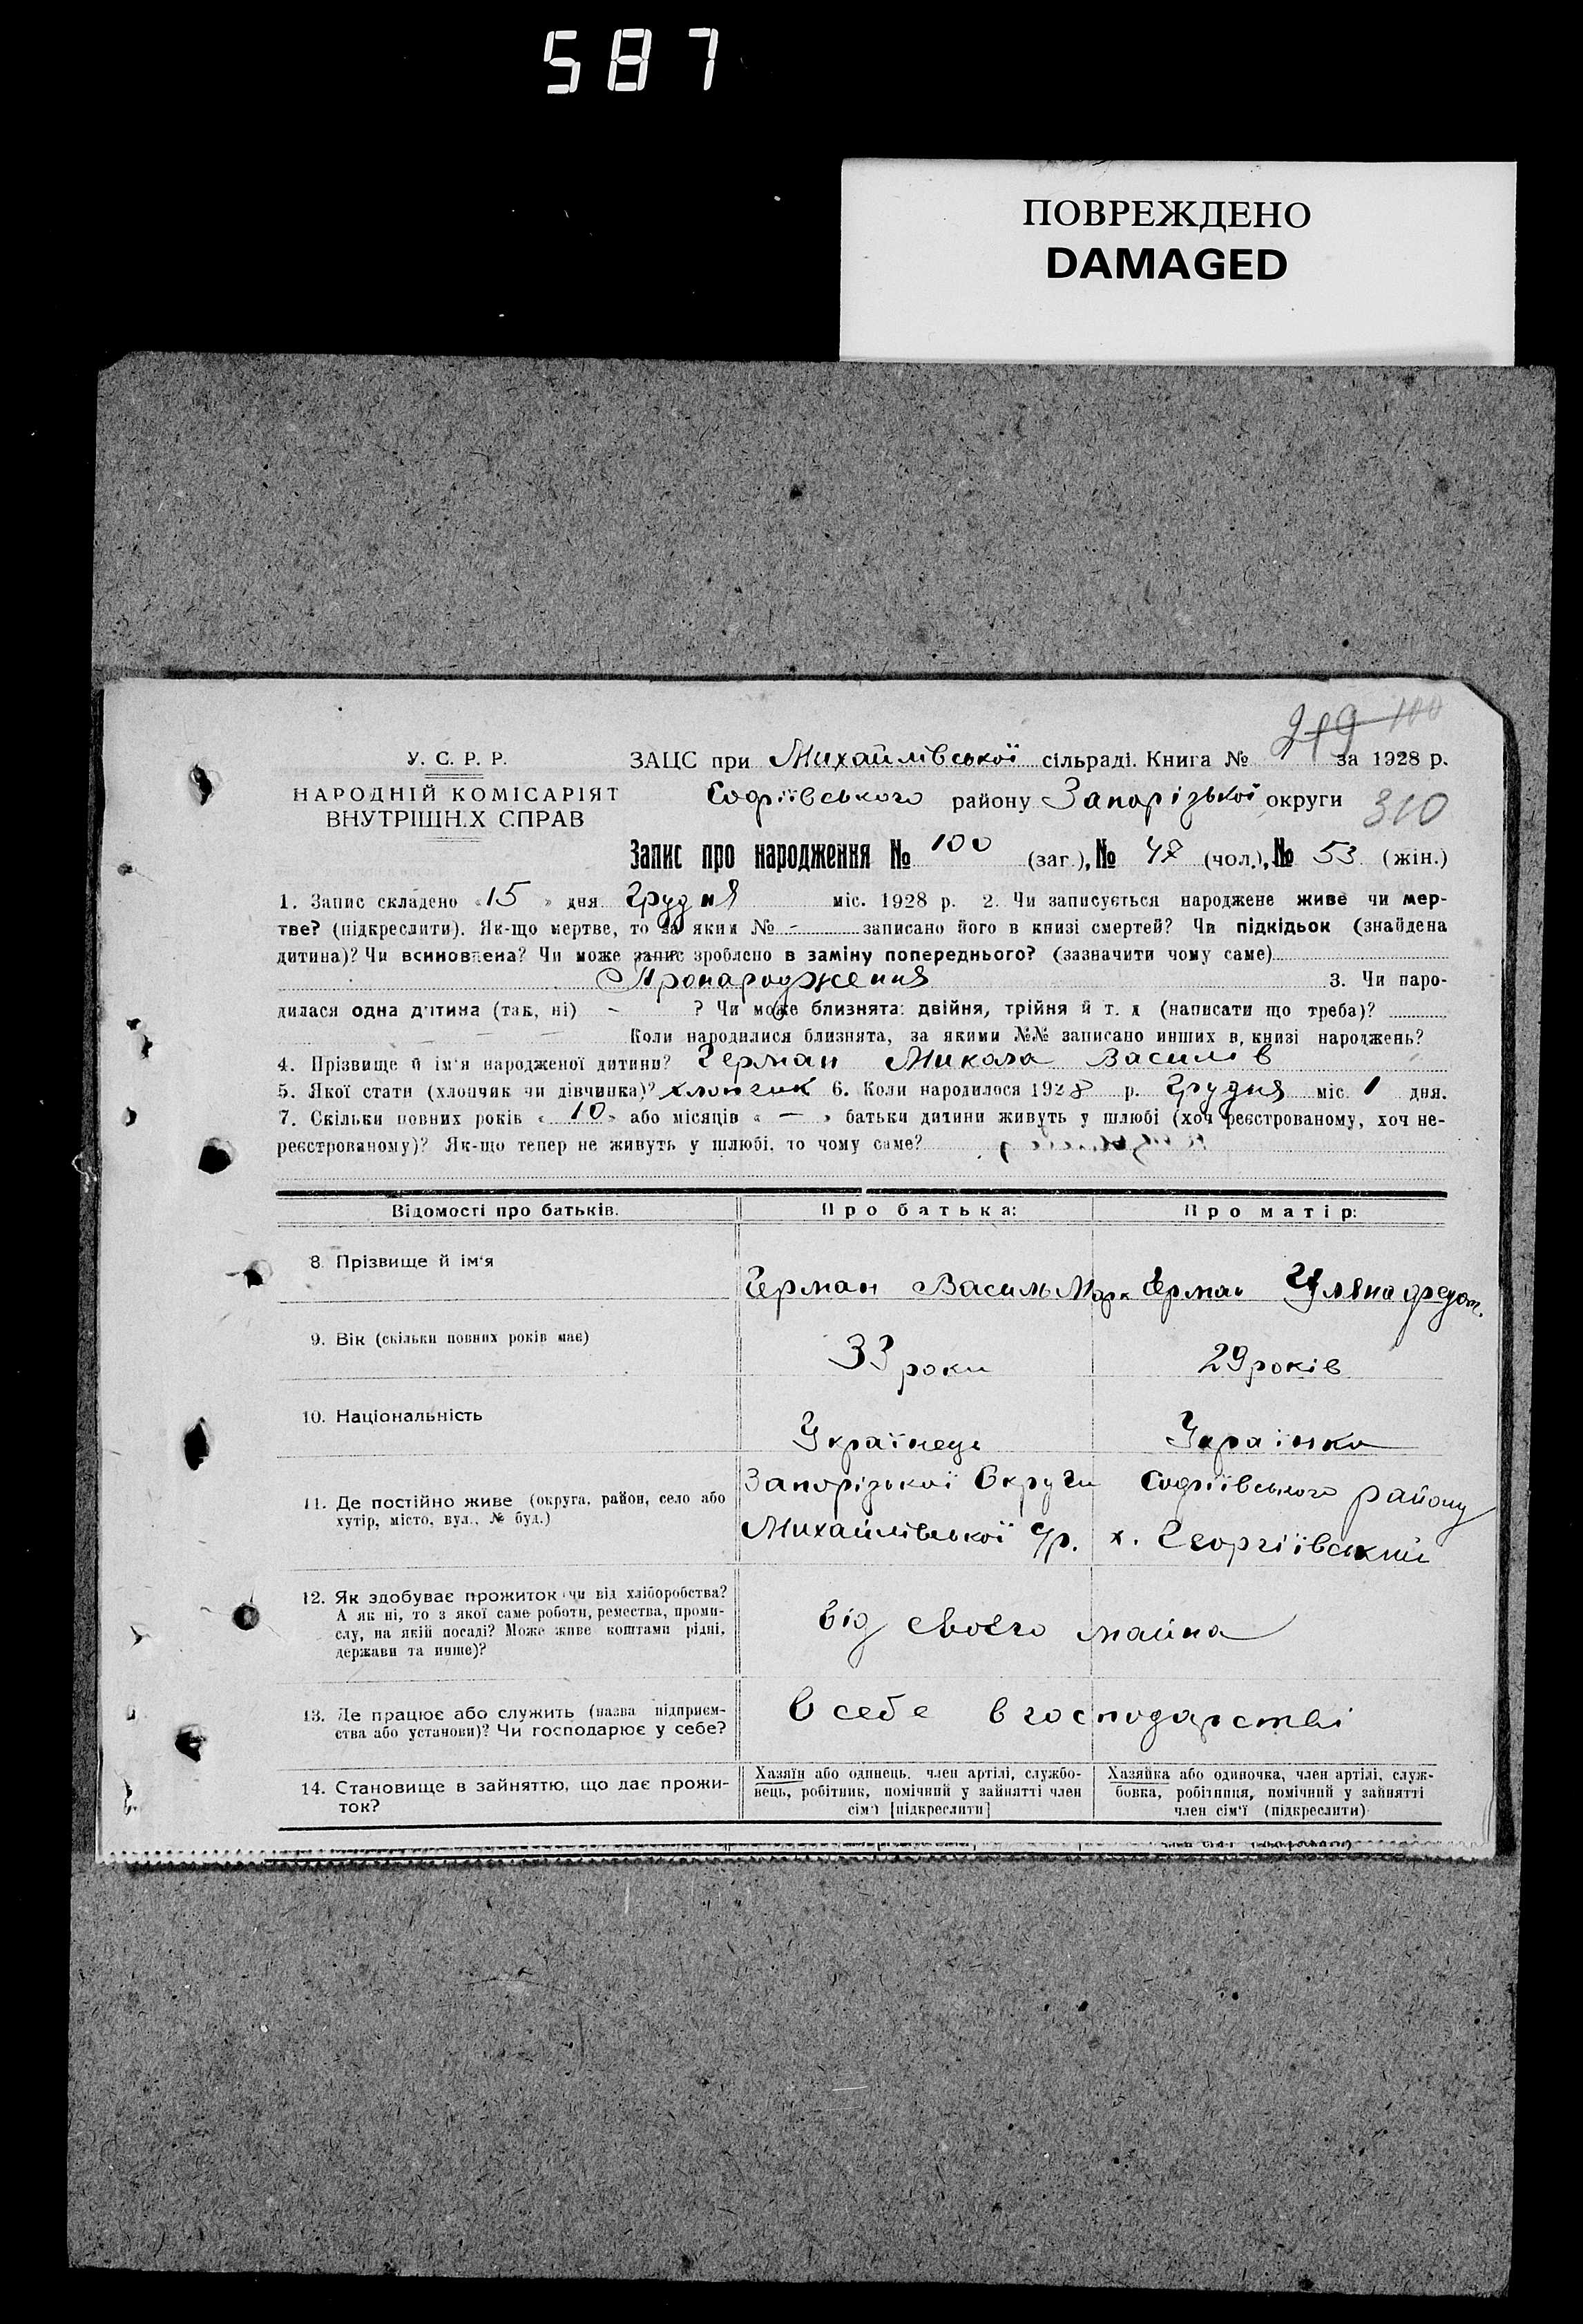 587
ПОВРЕЖДЕНО
DAMAGED
219 100
У. С. Р. Р.
ЗАЦС при Михайлівської сільраді. Книга № за 1928 р.
НАРОДНІЙ КОМІСАРІЯТ
ВНУТРІШНІХ СПРАВ
Софіївського району Запорізької округи 310
Запис про народження № 100 (заг.), № 47 (чол.), № 53 (жін.)
1. Запис складено «15» дня Грудня міс. 1928 р. 2. Чи записується народжене живе чи мер-
тве? (підкреслити). Як-що мертве, то за яким № - записано його в книзі смертей? Чи підкідьок (знайдена
дитина)? Чи всиновлена? Чи може запис зроблено в заміну попереднього? (зазначити чому саме)
Пронародження 3. Чи наро-
дилася одна дитина (так, ні) - ? Чи може близнята: двійня, трійня й т. д (написати що треба)?
Коли народилися близнята, за якими №№ записано инших в книзі народжень?
4. Прізвище й ім'я народженої дитини? Герман Микола Василів
5. Якої стати (хлопчик чи дівчинка)? хлопчик 6. Коли народилося 1928 р. Грудня міс. 1 дня.
7. Скільки повних років «10» або місяців «—» батьки дитини живуть у шлюбі (хоч реєстрованому, хоч не-
реєстрованому)? Як-що тепер не живуть у шлюбі, то чому саме?
Відомості про батьків. Про батька: Про матір:
8. Прізвище й ім'я
Герман Василь Марк Герман Уляна Федот.
9. Вік (скільки повних років має)
33 роки 29 років
10. Національність
Українець Українка
11. Де постійно живе (округа, район, село або
хутір, місто, вул., № буд.)
Запорізької Округи Софіївського району
Михайлівської с/р. х. Георгіївський
12. Як здобуває прожиток чи від хліборобства?
А як ні, то з якої саме роботи, ремества, проми-
слу, на якій посаді? Може живе коштами рідні,
держави та инше)?
від свого майна
13. Де працює або служить (назва підприєм-
ства або установи)? Чи господарює у себе?
в себе в господарстві
14. Становище в зайняттю, що дає прожи-
ток?
Хазяїн або одинець, член артілі, службо-
вець, робітник, помічний у зайнятті член
сім'ї [підкреслити]
Хазяйка або одиночка, член артілі, служ-
бовка, робітниця, помічний у зайнятті
член сім'ї (підкреслити)